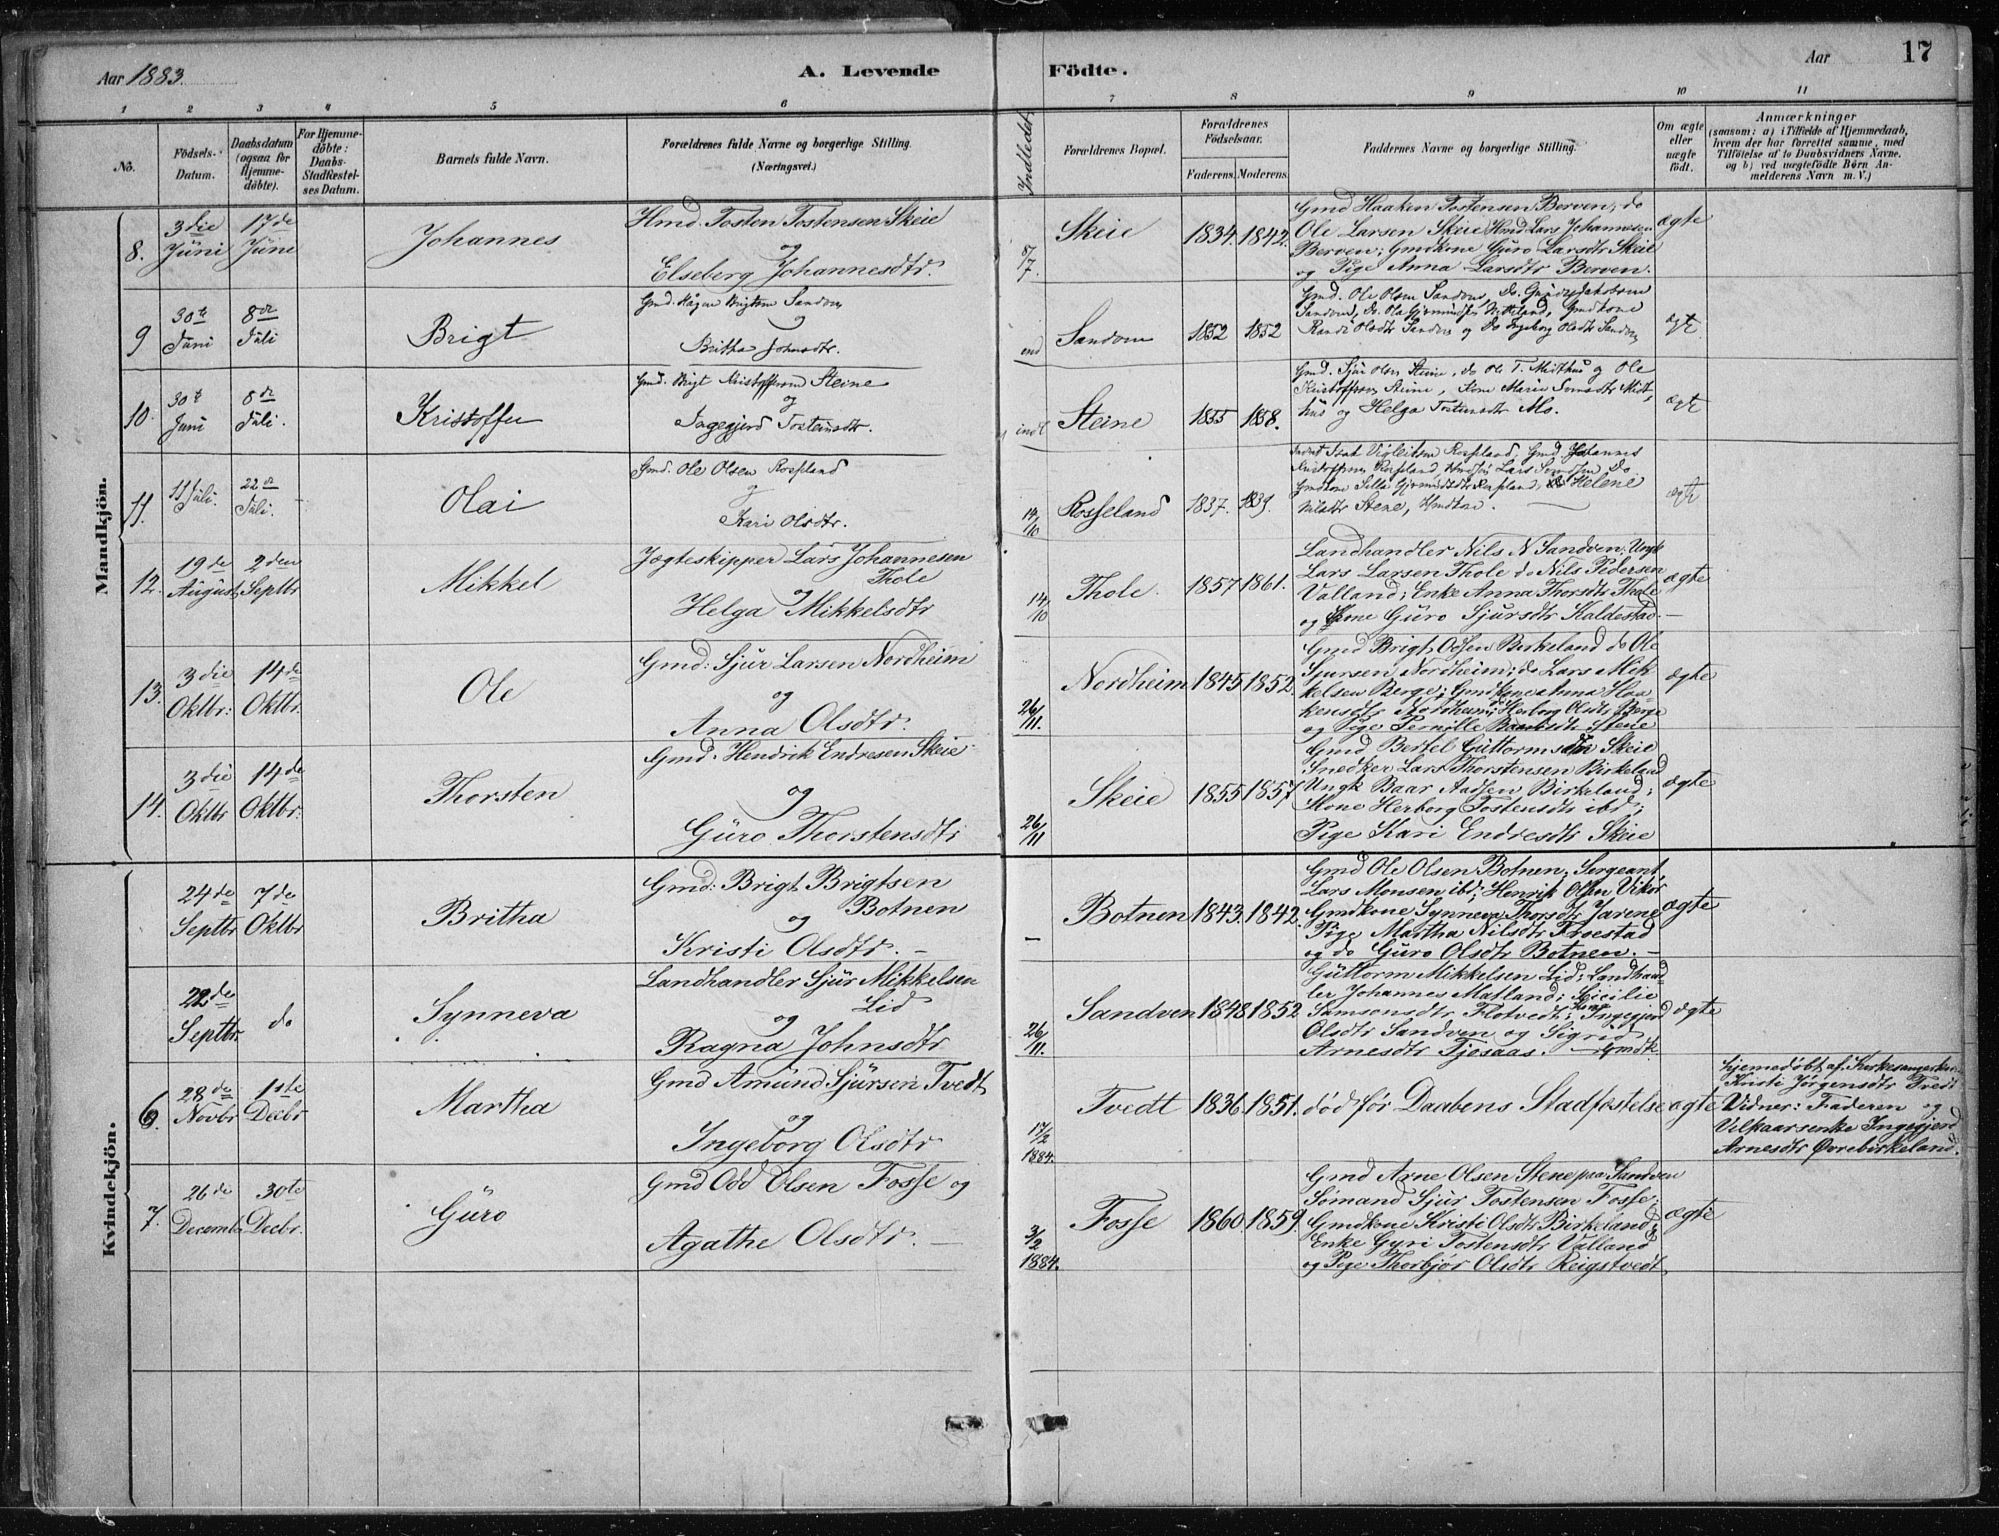 Aar 1883.
A. Levende Födte.
Aar
17
1 2 3 4 5 6 7 8 9 10 11
No.
Födsels-Datum.
Daabsdatum (ogsaa for Hjemmedöbte).
For Hjemmedöbte: Daabs-Stadfæstelses Datum.
Barnets fulde Navn.
Forældrenes fulde Navne og borgerlige Stilling. (Næringsvei.)
Indledet
Forældrenes Bopæl.
Forældrenes Födselsaar.
Faderens. Moderens.
Faddernes Navne og borgerlige Stilling.
Om ægte eller uægte födt.
Anmærkninger
(saasom: a) i Tilfælde af Hjemmedaab, hvem der har forrettet samme, med Tilföielse af to Daabsvidners Navne, og b) ved uægtefödte Börn Anmelderens Navn m. V.)
Mandkjön.
8. 3die Jüni 17de Jüni
Johannes
Hmd. Tosten Tostensen Skeie
og
Elseberg Johannesdtr.
8/7.
Skeie 1834. 1842.
Gmd Haaken Tostensen Berven, do
Ole Larsen Skeie Hmd Lars Johannesen
Berven; Gmdkone Güro Larsdtr Skeie
og Pige Anna Larsdtr Berven.
ægte
9 30te Juni 8de Juli
Brigt
Gmd. Hågen Brigtsen Sandven
og
Britha Johnsdtr.
end
Sandven 1852 1852
Gmd. Ole Olsen Sandven, Do.
Gmdkone
Randi Olsdtr Sandven og Do Ingeborg Olsdtr Sandven
ægte.
10. 30te Juni 8de Juli.
Kristoffer
Gmd. Brigt Kristoffersen Steine
og
Ingegjerd Tostensdtr.
indl
Steine 1855 1858.
Gmd. Sjur Olsen Steine, do Ole T. Midthus og Ole
Kristoffersen Steine, Kone Marie
hus og Helga Tostensdtr Mo.
ægte
11. 11 Juli. 22de Juli.
Olai
Gmd. Ole Olsen Rosseland
og
Kari Olsdtr.
14/10
Rosseland 1837. 1839.
Rosseland, Gmd Johannes
Rosseland, Lars
Rosseland, Helene
Nilsdtr Stene,
ægte
12. 19de August 2den Septbr
Mikkel
Jægteskipper Lars Johannesen
Thole
og
Helga Mikkelsdtr
14/10
Thole. 1857 1861.
Landhandler Nils N Sandven; Ungk
Lars Larsen Thole do Nils Pedersen
Valland; Enke Anna Thorsdtr Thole
og Kone Güro Sjursdtr Kaldestad.
ægte
13. 3die Oktbr: 14de Oktbr.
Ole
Gmd: Sjur Larsen Nordheim
og
Anna Olsdtr.
26/11.
Nordheim 1845 1852.
Gmd Brigt Odsen Birkeland do Ole
Sjursen Nordheim; do Lars Mik-
kelsen Berge; Gmdkone Anna Haa-
kensdtr Nordheim; Herborg Olsdtr Berge
og Pige Pernille Baardsdtr Stene
ægte
14. 3die Oktbr 14de Oktbr:
Thorsten
Gmd: Hendrik Endresen Skeie
og
Güro Thorstensdtr
26/11
Skeie 1855 1857
Gmd Bertel Güttormsen Skeie
Snedker Lars Thorstensen Birkeland
Ungk Baar Aadsen Birkeland;
Kone Herborg Tostensdtr ibd;
Pige Kari Endresdtr Skeie
ægte
Kvindekjön.
24de Septbr 7de Oktbr
Britha
Gmd: Brigt Brigtsen
Botnen
og
Kristi Olsdtr.
Botnen 1843. 1842.
Gmd Ole Olsen Botnen, Sergeant,
Lars Monsen ibd; Henrik Olsen Vikør
Gmdkone Synneva Thorsdtr Jarene
Pige Martha Nilsdtr Froestad
og do Güro Olsdtr Botnen.
ægte
22de Septbr. do
Synneva
Landhandler Sjur Mikkelsen
Lid
og
Ragna Johnsdtr
26/11.
Sandven 1848 1852
Güttorm Mikkelsen Lid; Landhand-
ler Johannes Matland; Sicilie
Samsonsdtr Flotvedt; Kone Ingegjerd
Olsdtr Sandven og Sigrid
Arnesdtr Tjesaas. Gmdk.
ægte
6. 28de Novbr 11te Decbr
Martha
Gmd Amund Sjürsen Tvedt
og
Ingeborg Olsdtr
17/2 1884.
Tvedt 1836 1851. død før Daabens Stadfæstelse ægte
Hjemedøbt af Kirkesanger
Kristi Jørgensdtr Tvedt
Vidner: Faderen og
Vilkaarsenke Ingegjerd
Arnesdtr Øvrebirkeland.
7. 26de Decembr 30te Decbr.
Güro
Gmd Odd Olsen Fosse og
Agathe Olsdtr.
3/2 1884.
Fosse 1860. 1859
Gmd Arne Olsen Stene paa Sandven
Sømand Sjur Tostensen Fosse;
Gmdkone Kristi Olsdtr Birkeland;
Enke Gyri Tostensdtr Valland
og Pige Thorbjør Olsdtr Reigstvedt
ægte